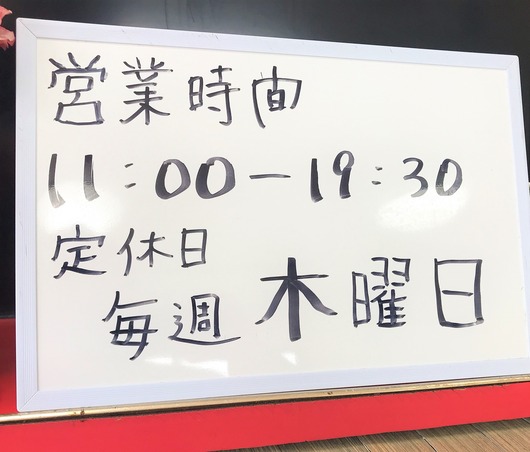 営業時間
11:00-19:30
定休日
毎週木曜日